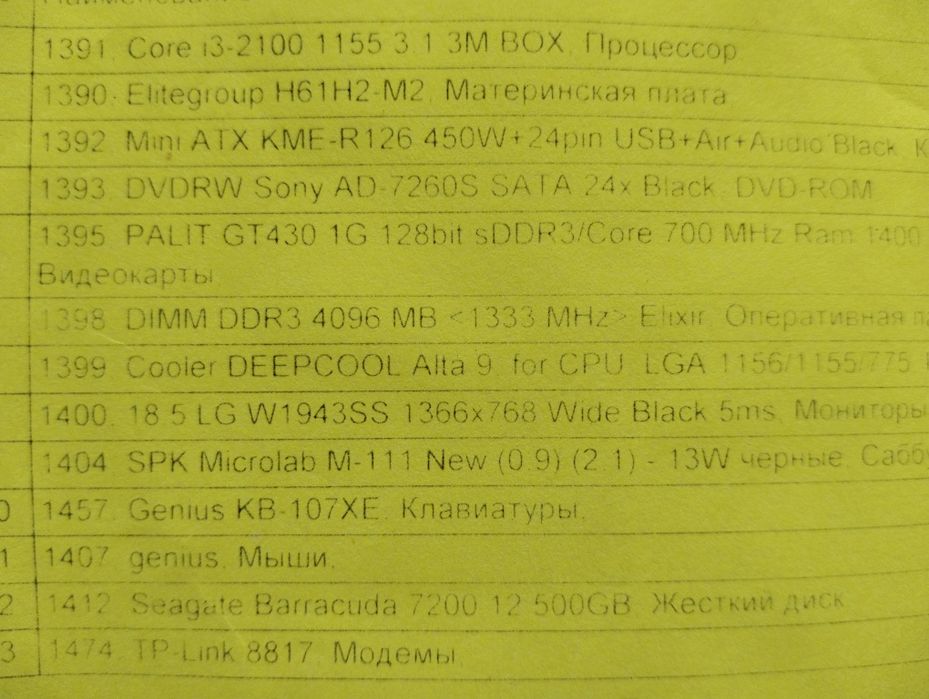 1391, Core i3-2100 1155 3.1 3M BOX, Процессор
1390, Elitegroup H61H2-M2, Материнская плата
1392, Mini ATX KME-R126 450W+24pin USB+Air+Audio Black, К
1393, DVDRW Sony AD-7260S SATA 24x Black, DVD-ROM
1395, PALIT GT430 1G 128bit sDDR3/Core 700 MHz Ram 1400
Видеокарты
1398, DIMM DDR3 4096 MB <1333 MHz> Elixir, Оперативная
1399, Cooler DEEPCOOL Alta 9, for CPU, LGA 1156/1155/775,
1400, 18.5 LG W1943SS 1366x768 Wide Black 5ms, Мониторы
1404, SPK Microlab M-111 New (0.9) (2.1) - 13W черные, Сабб
0 1457, Genius KB-107XE, Клавиатуры,
1 1407, genius, Мыши,
2 1412, Seagate Barracuda 7200.12 500GB, Жесткий диск
3 1474, TP-Link 8817, Модемы,